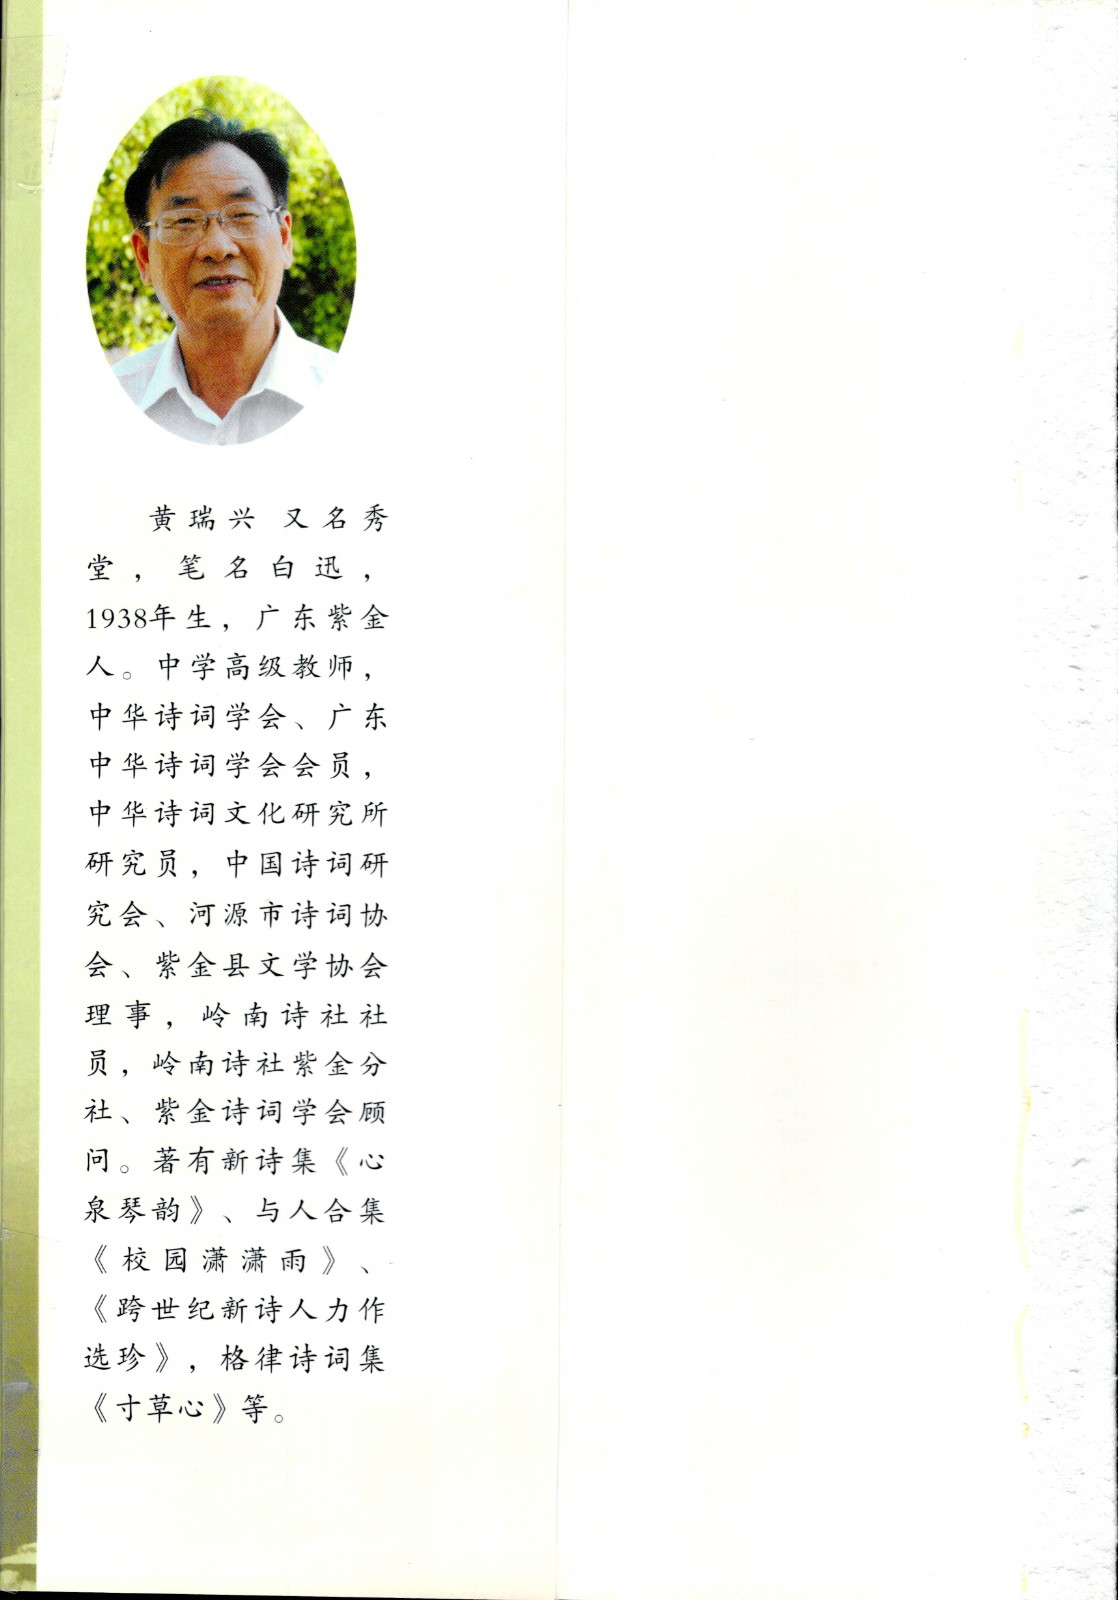 黄瑞兴 又名秀
堂，笔名白迅，
1938年生，广东紫金
人。中学高级教师，
中华诗词学会、广东
中华诗词学会会员，
中华诗词文化研究所
研究员，中国诗词研
究会、河源市诗词协
会、紫金县文学协会
理事，岭南诗社社
员，岭南诗社紫金分
社、紫金诗词学会顾
问。著有新诗集《心
泉琴韵》、与人合集
《校园潇潇雨》、
《跨世纪新诗人力作
选珍》，格律诗词集
《寸草心》等。